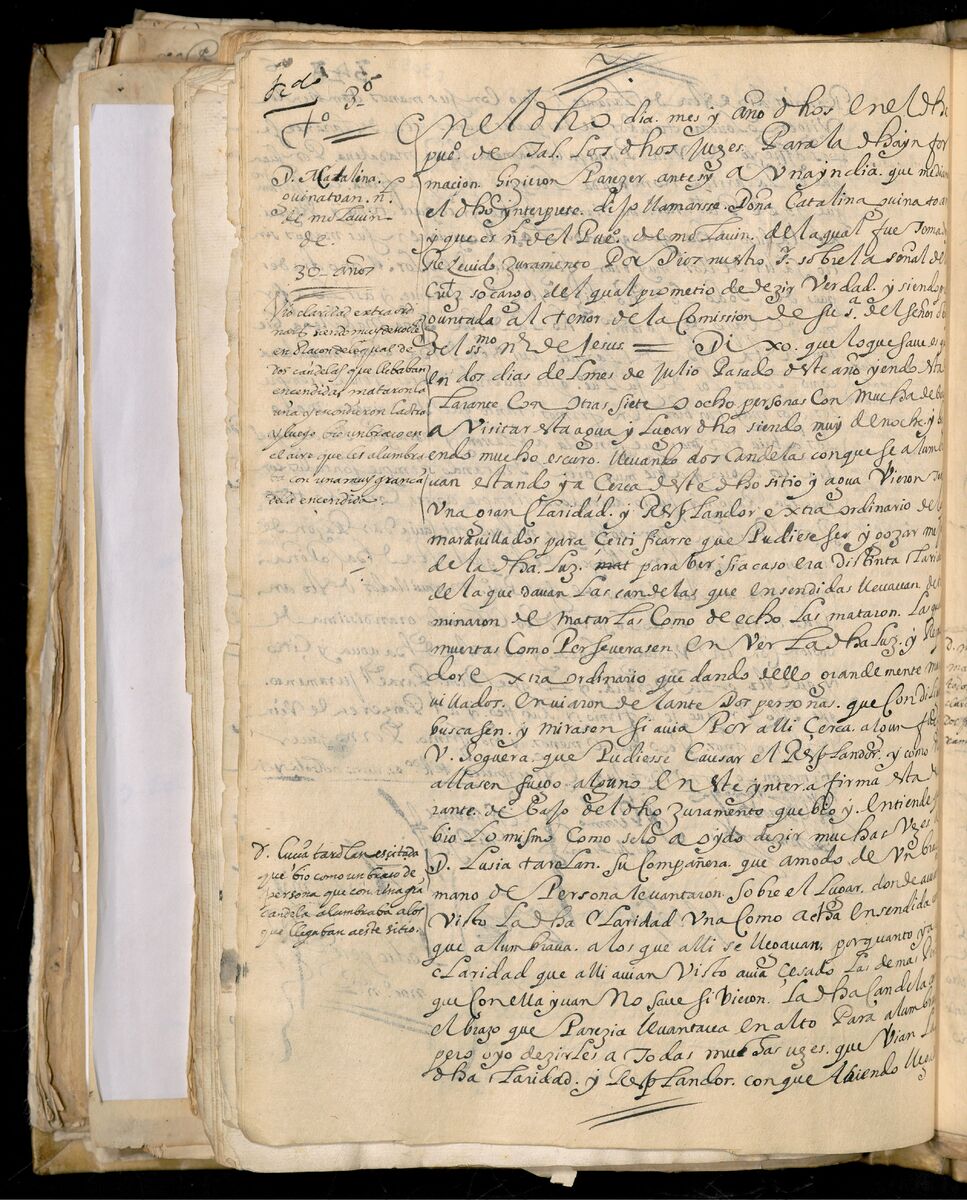 tt.º 3.º
4.º
D. Matalina.
ouinatoan. n.
de motauin
de.
30 años
Vio claridad extraord
naria siendo muy de noche
en
dos candelas que llebaban
encendidas mataron la
una y escondieron la otra
y luego bio un braco en
el aire que les alumbra
ba con una muy gran ca
dela encendida.
D. Lucia tarolan es citada
que bio como un braco de
persona que con una grã
candela alumbraba a los
que llegaban a este sitio.
En el dho dia. mes y año dhos en el dho
pu.º de Tal. Los dhos Juzes. Para la dha ynfor
macion. hizieron Parezer ante sy a Vna yndia. que median
el dho ynterprete. dijo llamarsse. Doña Catalina ouina toan
y que es n.l del Pu.º de motauin. de la qual fue Toma
Re Zeuido Zuramento Por Dios nuestro S.r sobre la señal de
Cruz so cargo del qual prometio de dezir Verdad. y siendo
ountada al tenor de la Comission de su s.a del señor
del ss.mo n.e de Jesus = Dixo. que lo que saue es
en dos dias del mes de Julio Pasado deste año yendo esta
Larante Con otras siete o ocho personas Con mucha de
a Visitar esta agua y Lugar dho siendo muy de noche y
endo mucho escuro. lleuando dos Candelas con que se alum
uan estando ya Cerca deste dho sitio y agua Vieron
Vna gran Claridad. y Resplandor extra ordinario de
marauillados para Certificarse que Pudiese ser y gozar
de la dha. Luz. mat para ber si acaso era Distinta Clari
de la que dauan Las candelas que ensendidas lleuauan
minaron de matar Las Como de echo Las mataron. Las
muertas Como Perseverasen en Ver La dha Luz. y
dor extra ordinario quedando dello grandemente
uillados. enuiaron de lante Dos personas. que Con
buscasen. y mirasen si auia Por alli Cerca algun
V. Hoguera. que Pudiesse Causar el Resplandor. y como
allasen fuego alguno En este ynter afirma esta
rante. de bajo del dho Zuramento que bio y. entiende
bio Lo mismo Como se lo a oydo dezir muchas Vezes
D. Lusia tarolan. su Compañera. que a modo de Vn
mano de Persona leuantaron. sobre el Lugar. donde auia
Visto La dha Claridad Vna como acha ensendida
que alumbraua. a los que alli se llegauan. por quanto ya
claridad que alli auian Visto auia Cesado Las demas
que Con ella yuan No saue si Vieron. La dha Candela
el brazo que Parezia leuantaua en alto Para alumb
pero oyo dezirles a Todas muchas uzes. que Vian La
dha Claridad. y Resplandor. con que Auiendo llega